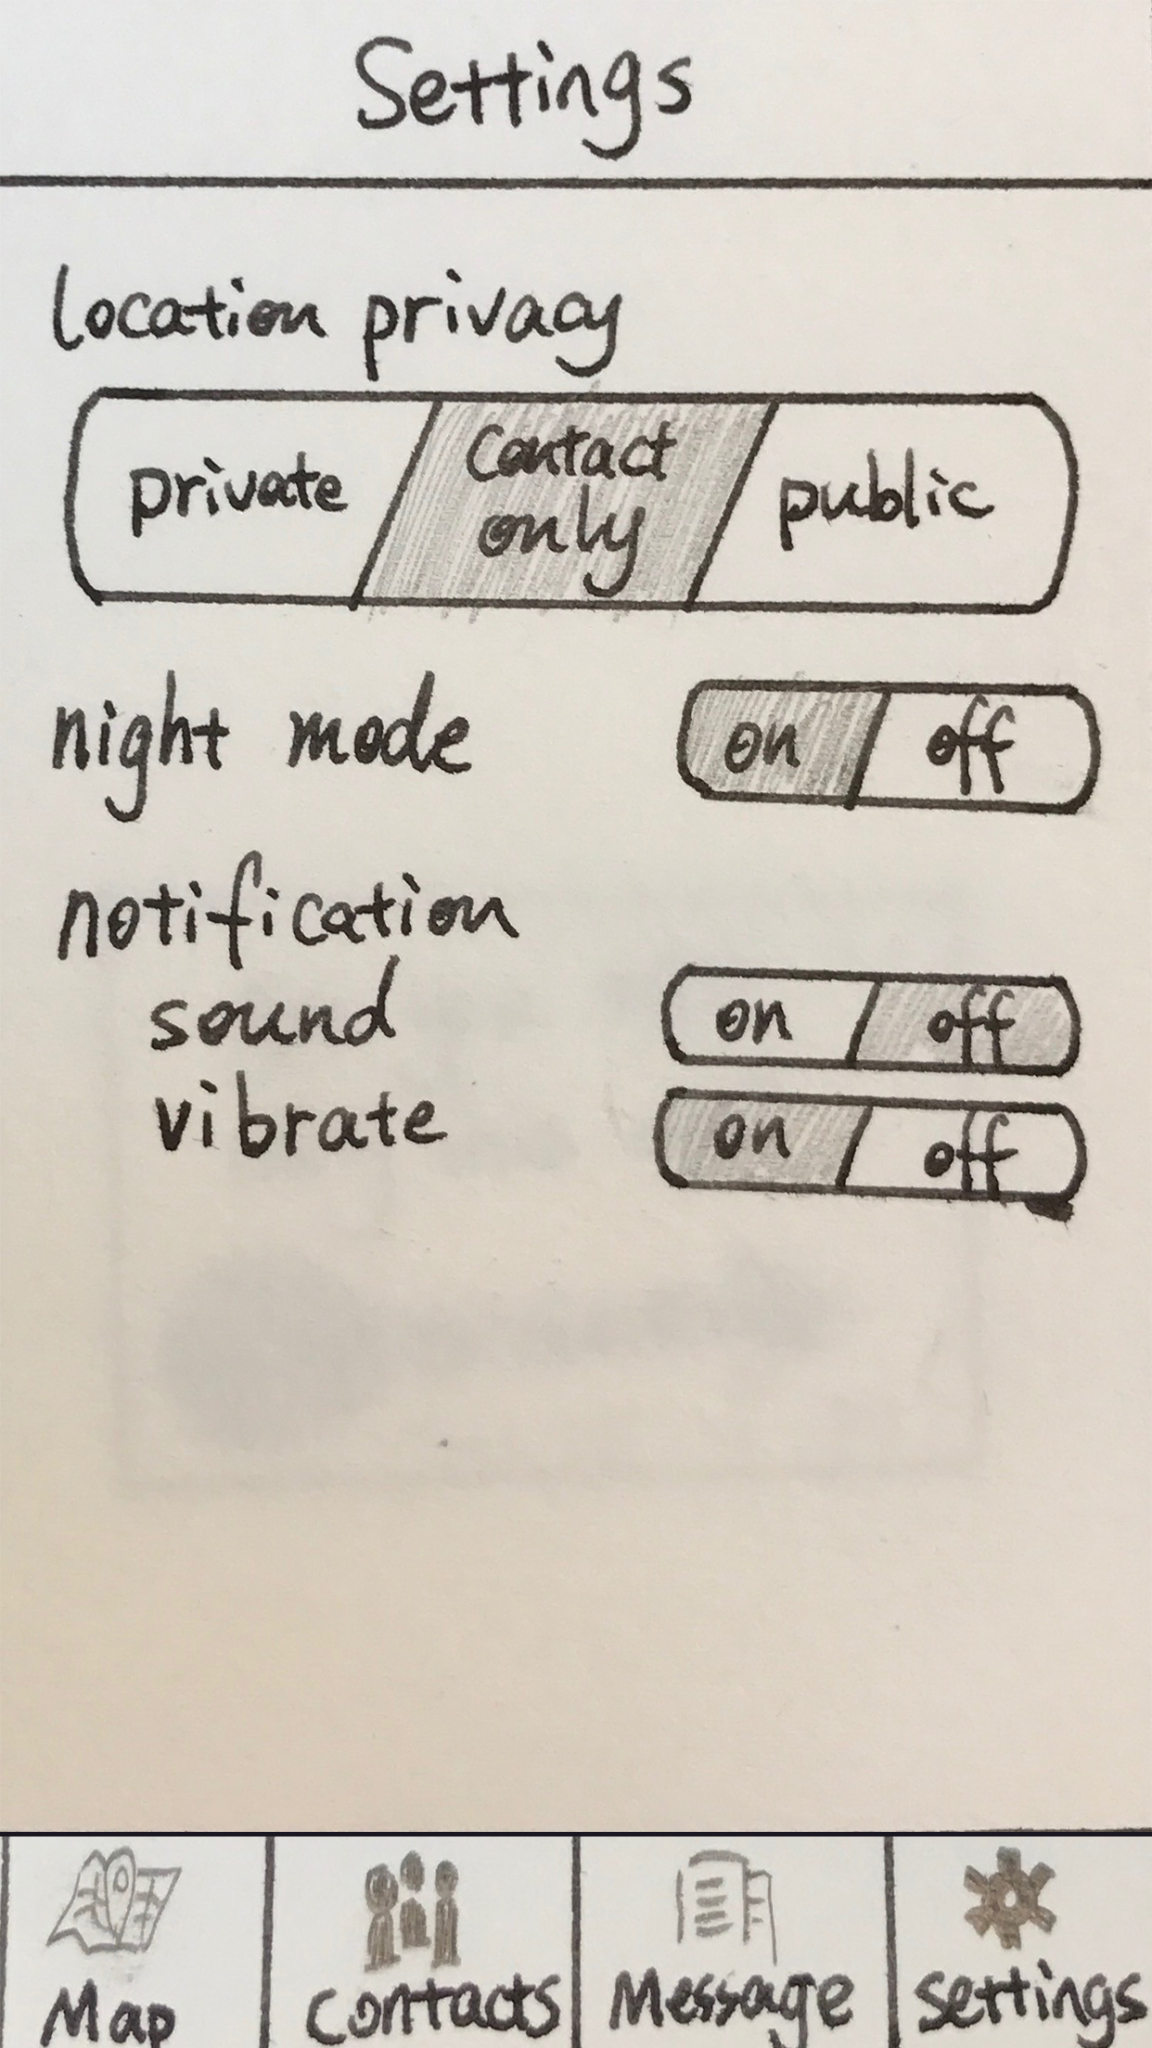 Settings
location privacy
private contact only public
night mode on off
notification
sound on off
vibrate on off
Map Contacts Message settings